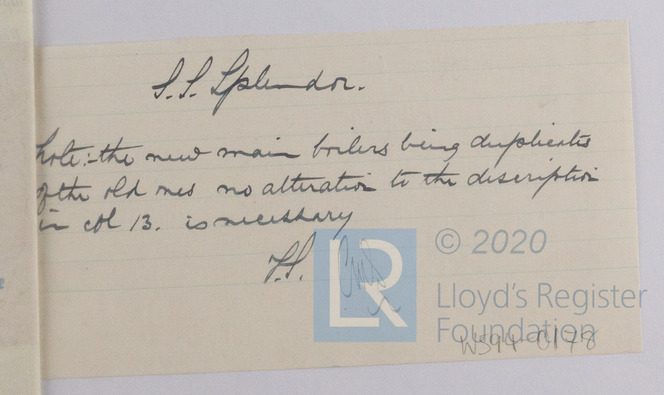 S.S. Splendor.
Note:- the new main boilers being duplicates
of the old ones no alteration to the description
in col 13. is necessary
© 2020
LR
Lloyd's Register
Foundation
W594-0178